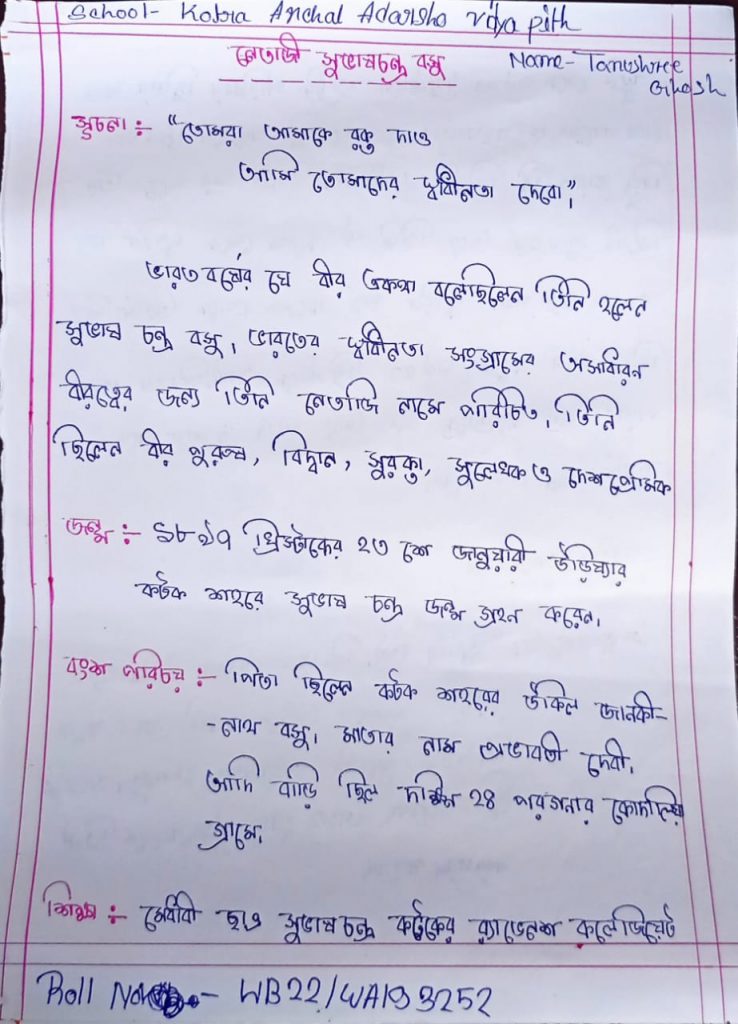 School- Kobra Anchal Adarsha vidya pith
নেতাজী সুভাষচন্দ্র বসু
Name- Tomushree Ghosh
সুচনা :- "তোমরা আমাকে রক্ত দাও
আমি তোমাদের স্বাধীনতা দেবো"।
ভারতবর্ষের যে বীর একথা বলেছিলেন তিনি হলেন
সুভাষ চন্দ্র বসু। ভারতের স্বাধীনতা সংগ্রামের অসাধারন
বীরত্বের জন্য তিনি নেতাজি নামে পরিচিত। তিনি
ছিলেন বীর পুরুষ, বিদ্বান, সুবক্তা, সুলেখক ও দেশপ্রেমিক
জন্ম :- ১৮৯৭ খ্রিস্টাব্দের ২৩ শে জানুয়ারী উড়িষ্যার
কটক শহরে সুভাষ চন্দ্র জন্ম গ্রহন করেন।
বংশ পরিচয় :- পিতা ছিলেন কটক শহরের উকিল জানকী-
-নাথ বসু। মাতার নাম প্রভাবতী দেবী।
আদি বাড়ি ছিল দক্ষিন ২৪ পরগনার কোদালিয়া
গ্রামে।
শিক্ষা :- মেধাবী ছাত্র সুভাষচন্দ্র কটকের র‍্যাভেনশ কলেজিয়েট
Roll No - WB22/WA193252